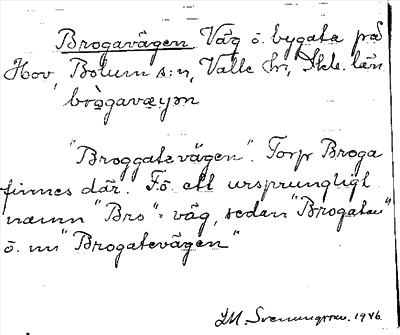 Brogavägen Väg ö. bygata på
Hov, Bolum s:n, Valle hr, Skb. län
brògavæyən
"Broggatevägen". Torp Broga
finnes där. Fö ett ursprungligt
namn "Bro"-väg, sedan "Brogatan"
ö. nu "Brogatevägen"
M. Svenungsson. 1946.